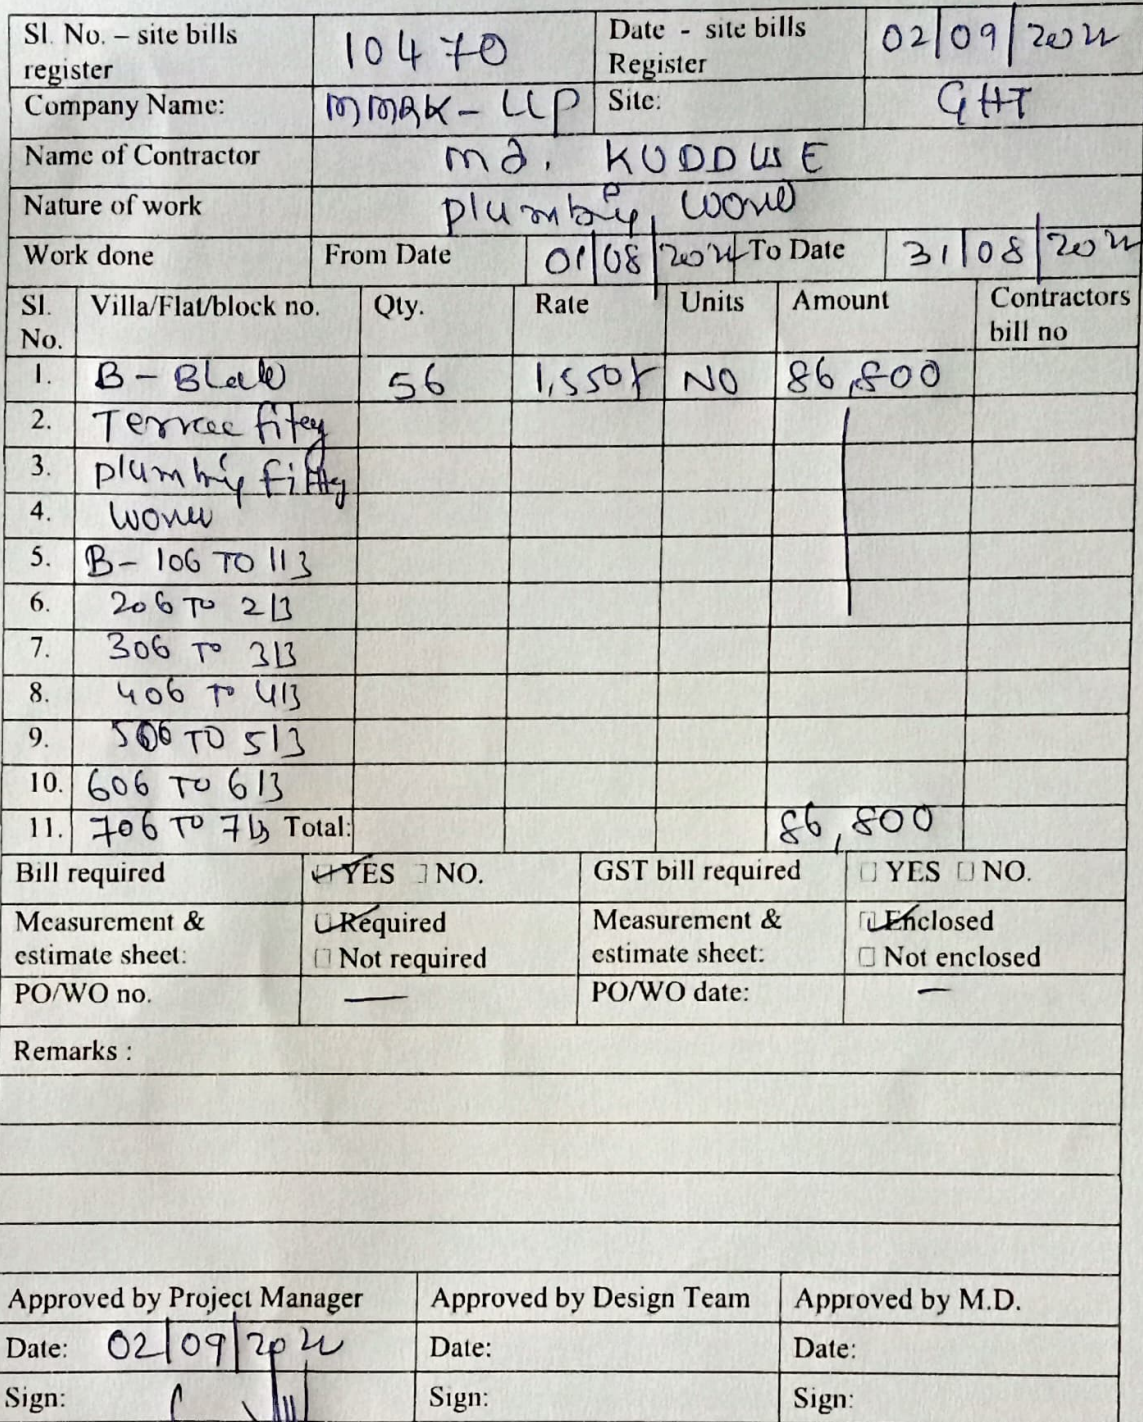 Sl. No. – site bills register 10470 Date - site bills Register 02/09/2022
Company Name: MMRK-LLP Site: GHT
Name of Contractor Md. KUDDUSE
Nature of work Plumbing work
Work done From Date 01/08/2022 To Date 31/08/2022
Sl. No. Villa/Flat/block no. Qty. Rate Units Amount Contractors bill no
1. B - Block 56 1,550/- NO 86,800
2. Terrace fiteg
3. plumbing Fitting
4. work
5. B- 106 TO 113
6. 206 TO 213
7. 306 TO 313
8. 406 TO 413
9. 506 TO 513
10. 606 TO 613
11. 706 TO 713 Total: 86,800
Bill required YES NO. GST bill required YES NO.
Measurement & estimate sheet: Required Not required Measurement & estimate sheet: Enclosed Not enclosed
PO/WO no. — PO/WO date: —
Remarks :
Approved by Project Manager Approved by Design Team Approved by M.D.
Date: 02/09/2022 Date: Date:
Sign: Sign: Sign: